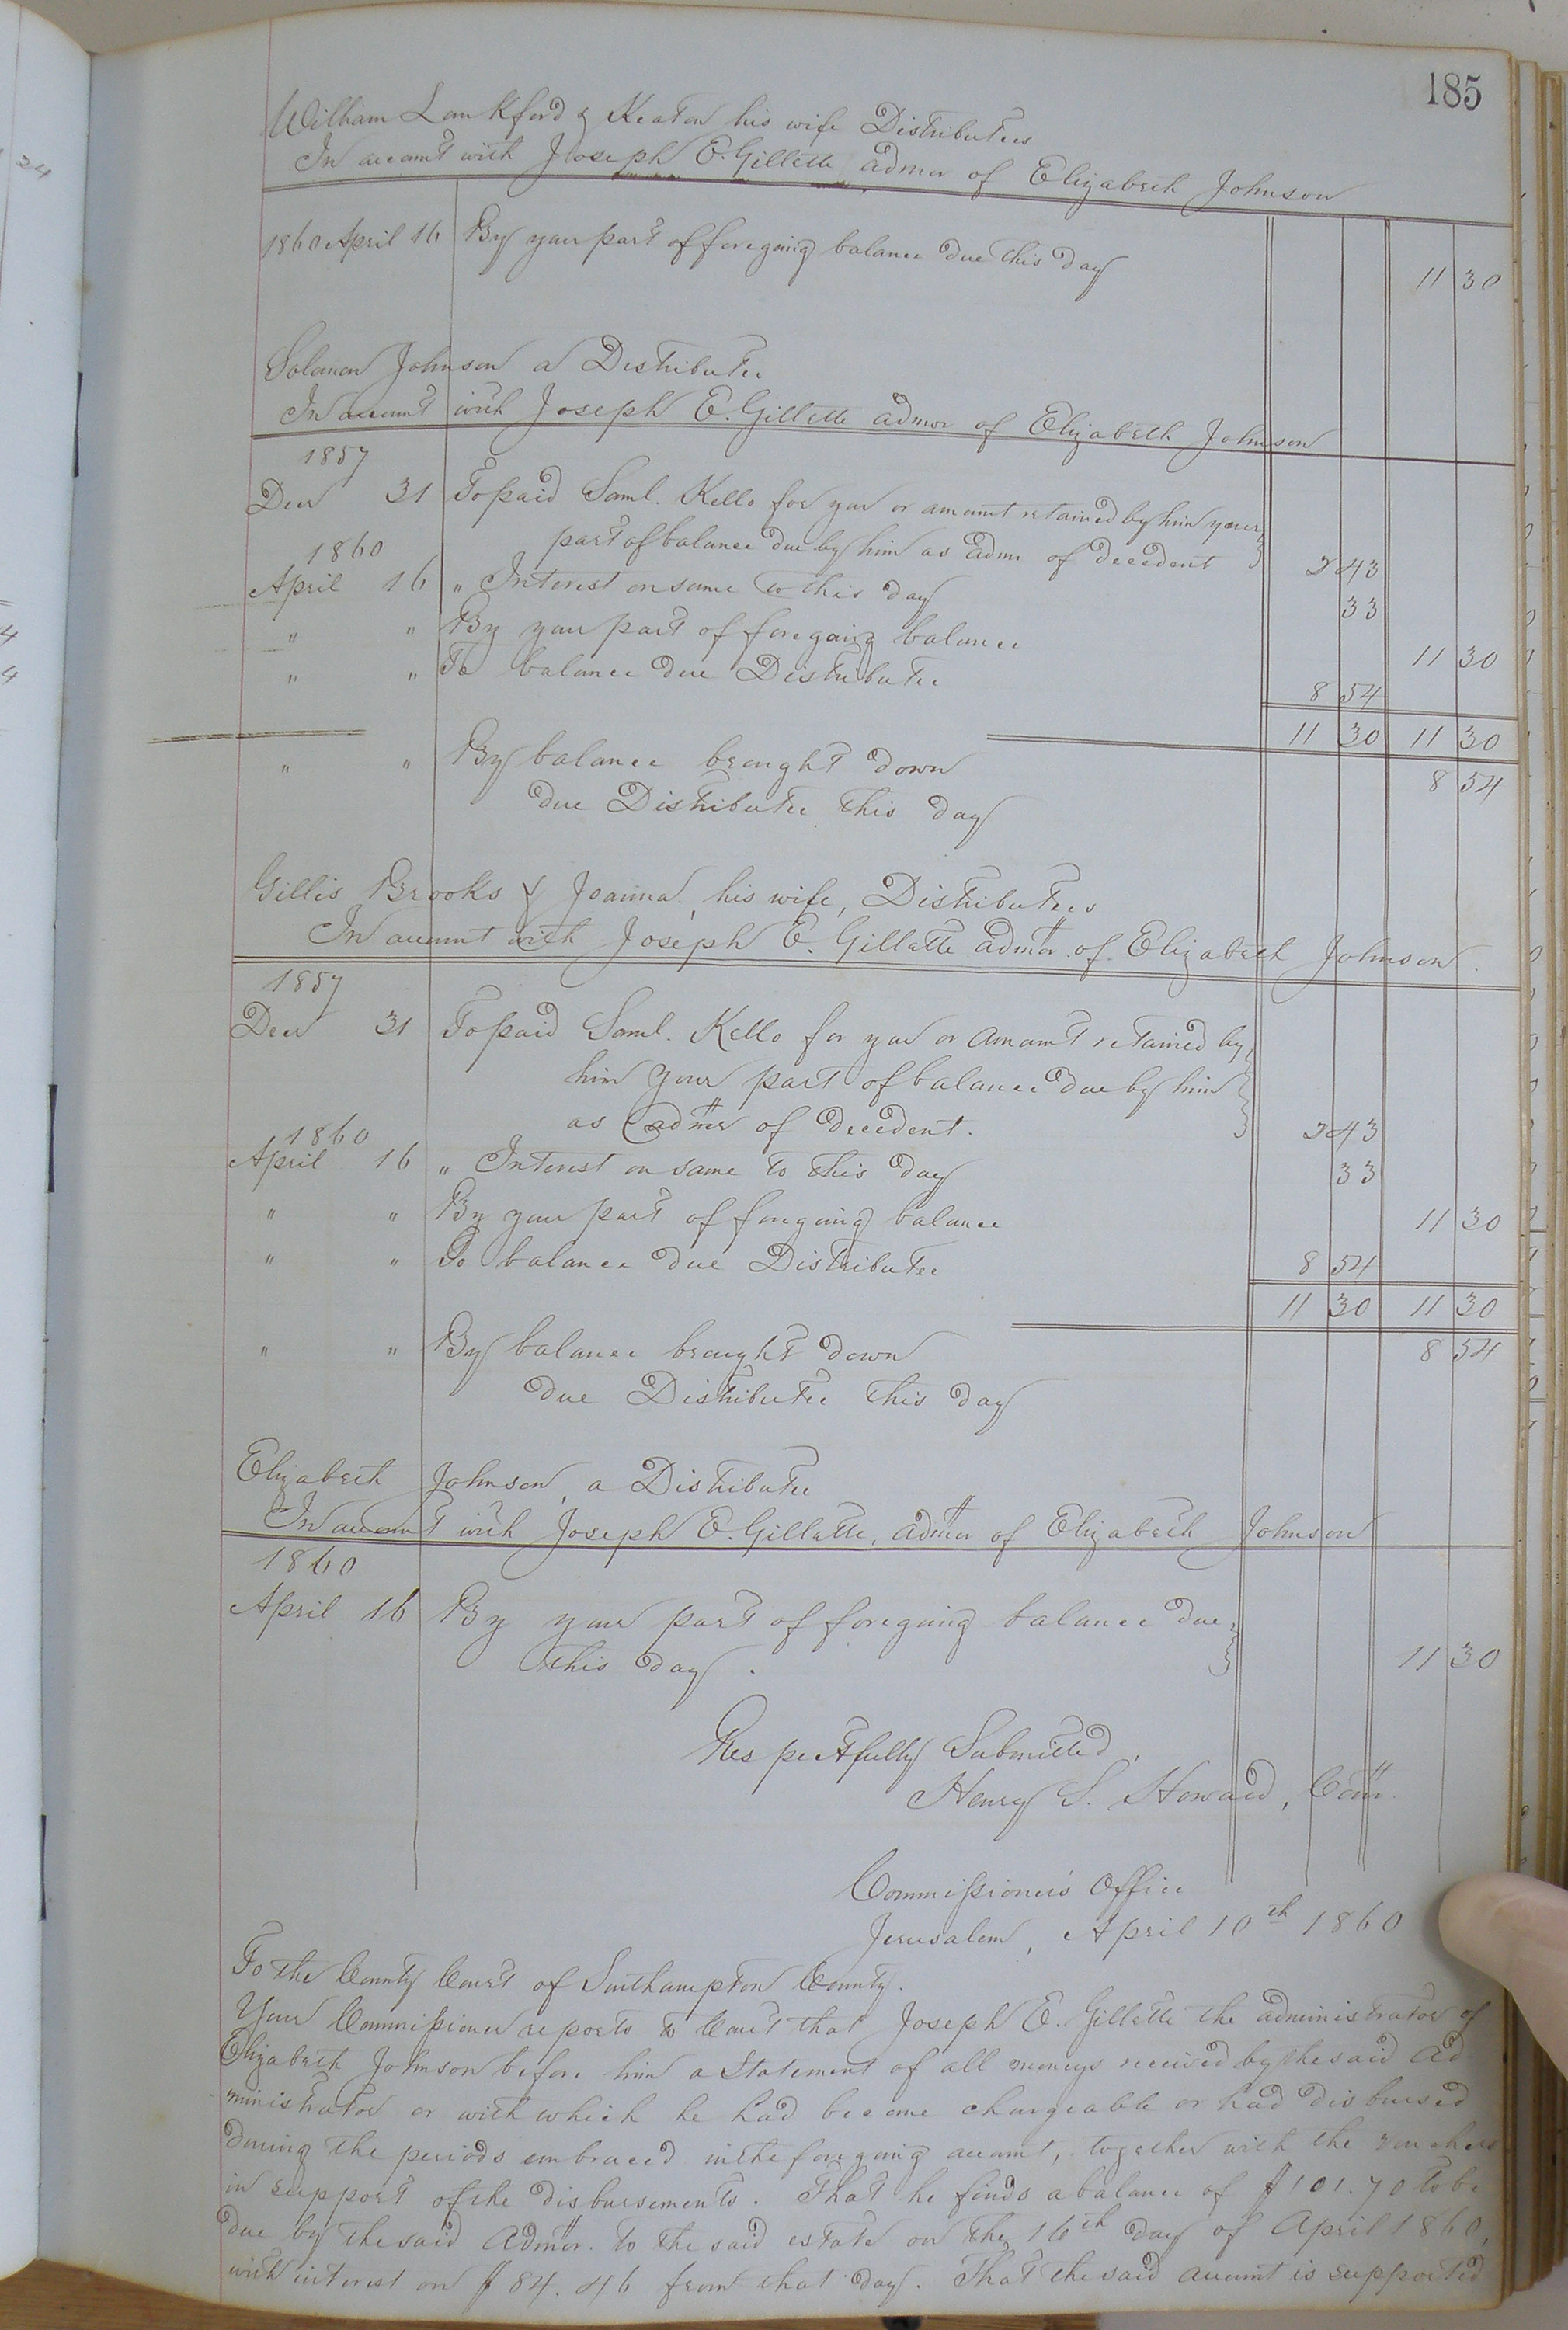 185
William Lankford & Keaton his wife Distributees
In account with Joseph E. Gillette admor of Elizabeth Johnson
1860 April 16 By your part of foregoing balance due this day 11 30
Soloman Johnson a Distributee
In account with Joseph E. Gillette admor of Elizabeth Johnson
1857
Decr 31 To paid Saml. Kello for you or amount retained by him your
part of balance due by him as admr of decedent 2 43
1860
April 16 " Interest on same to this day 33
" " By your part of foregoing balance 11 30
" " To balance due Distributee 8 54
11 30 11 30
" " By balance brought down 8 54
due Distributee this day
Gillis Brooks & Joanna, his wife, Distributees
In account with Joseph E. Gillette admor. of Elizabeth Johnson.
1857
Decr 31 To paid Saml. Kello for you or amount retained by
him your part of balance due by him
as admor of decedent. 2 43
1860
April 16 " Interest on same to this day 33
" " By your part of foregoing balance 11 30
" " To balance due Distributee 8 54
11 30 11 30
" " By balance brought down 8 54
due Distributee this day
Elizabeth Johnson, a Distributee
In account with Joseph E. Gillette, admor of Elizabeth Johnson
1860
April 16 By your part of foregoing balance due
this day. 11 30
Respectfully Submitted,
Henry S. Howard, Comr.
Commissioner's Office
Jerusalem, April 10th 1860
To the County Court of Southampton County.
Your Commissioner reports to Court that Joseph E. Gillette the administrator of
Elizabeth Johnson before him a Statement of all moneys received by the said Ad-
ministrator or with which he had become chargeable or had disbursed
during the periods embraced in the foregoing account, together with the vouchers
in support of the disbursements. That he finds a balance of $101.70 to be
due by the said Admor. to the said estate on the 16th day of April 1860,
with interest on $84.46 from that day. That the said account is supported